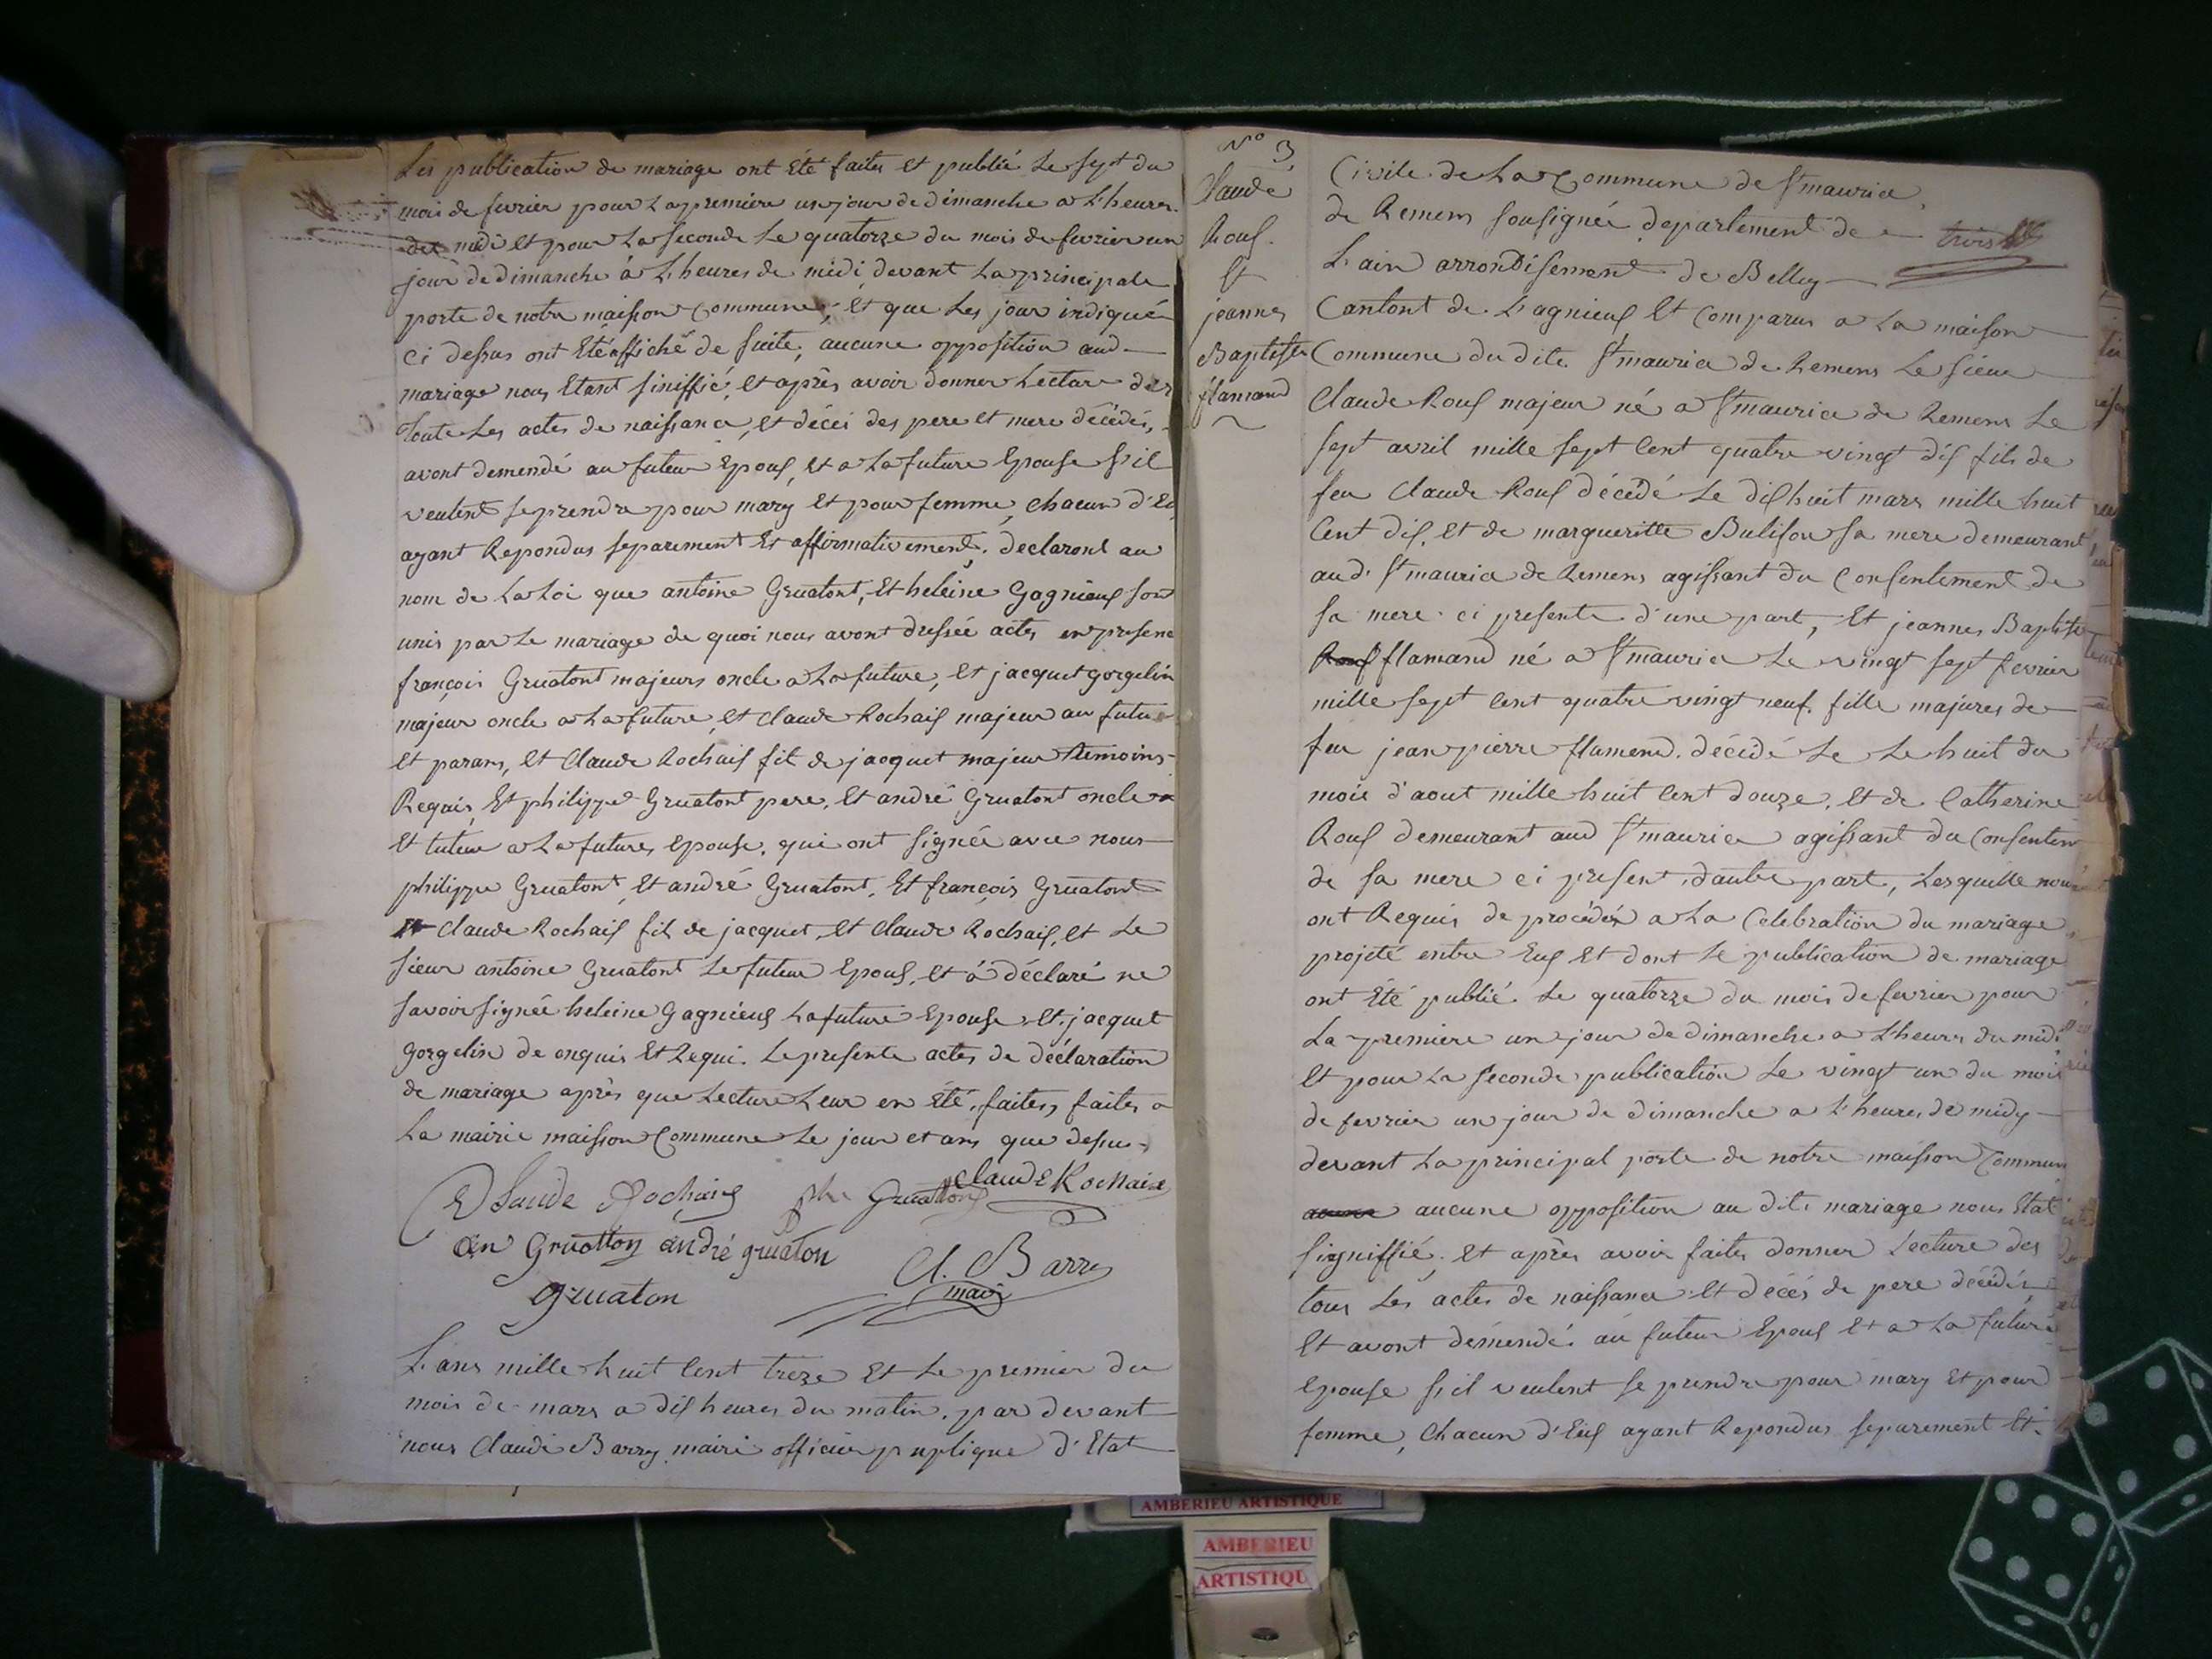 Les publication de mariage ont été faites et publié le sept du
mois de fevrier pour la premiere un jour de dimanche a l'heures
de midi et pour la seconde le quatorze du mois de fevrier un
jour de dimanche à l'heures de midi devant la principale
porte de notre maison commune, et que les jour indiqué
ci dessus ont été affiché de suite, aucune opposition aud
mariage nous étant sinifié, et après avoir donner lecture des
toute les actes de naissance, et décés des pere et mere décédés,
avont demendé au futeur epoux, et a la future epouse s'il
veulent se prendre pour mary et pour femme, chacun d'eu
ayant repondus separement et affirmativement, declaront au
nom de la loi que antoine Gruatont, et heleine Gagnieux sont
unis par le mariage de quoi nous avont dressée actes en presence
françois Gruatont majeurs oncle a la future, et jacquet gorgelin
majeur oncle a la future, et claude Rochaix majeur au futur
et parans, et Claude Rochaix fils de jacquet majeur témoins
Requis, et philippe Gruatont pere, et andré Gruatont oncle
et tuteur a la future, epouse, qui ont signée avec nous
philippe Gruatont, et andré Gruatont, et françois Gruatont
claude Rochaix fils de jacquet, et Claude Rochaix, et le
sieur antoine Gruatont le futeur epoux, et à déclaré ne
savoir signée heleine Gagnieux la future epouse, et jacquet
gorgelin de enquis et requi. Le presente actes de déclaration
de mariage après que lecture leur en été faites, faites a
la mairie maison commune le jour et ans que dessus
Claude Rochaix phe Gruatton claude Rochaix
an Gruatton andré gruaton
gruaton Cl. Barry
maire
L'ans mille huit cent treze et le premier du
mois de mars a dix heures du matin, par devant
nous Claude Barry maire officier puplique d'Etat
N° 3
Claude
Roux
et
jeannes
Baptiste
flamand
Civile de la Commune de St maurice
de Remens sousignée departement de trois
L'ain arrondisement de Belley
Cantont de Lagnieux et comparus a la maison
commune du dite St maurice de Remens le sieur
Claude Roux majeur né a St maurice de Remens le
sept avril mille sept cent quatre vingt dix fils de
feu Claude Roux décédé le dix huit mars mille huit
cent dix, et de margueritte Bulifon sa mere demeurant
aud. St maurice de Remens agissant du consentement de
sa mere ci presente d'une part, et jeannes Baptiste
Roux flamand né a St maurice le vingt sept fevrier
mille sept cent quatre vingt neuf, fille majeures de
feu jean pierre flamend, décédé le le huit du
mois d'aout mille huit cent douze, et de Catherine
Roux demeurant aud St maurice agissant du consentem
de sa mere ci present, dautre part, lesquelle nous
ont Requis de procéder a la celebration du mariage
projeté entre eux et dont le publication de mariage
ont été publié le quatorze du mois de fevrier pour
La premiere un jour de dimanche a l'heures du midi
et pour la seconde publication le vingt un du mois
de fevrier un jour de dimanche a l'heures de midy
devant la principal porte de notre maison commun
aucune opposition au dit mariage nous etat
signiffié, et après avoir faites donner lecture des
tous les actes de naissance et décés de pere décédés
et avont démendé au futeur epoux et a la future
epouse s'il veulent se prendre pour mary et pour
femme, chacun d'eux ayant repondus separement et
AMBERIEU ARTISTIQUE
AMBERIEU
ARTISTIQU